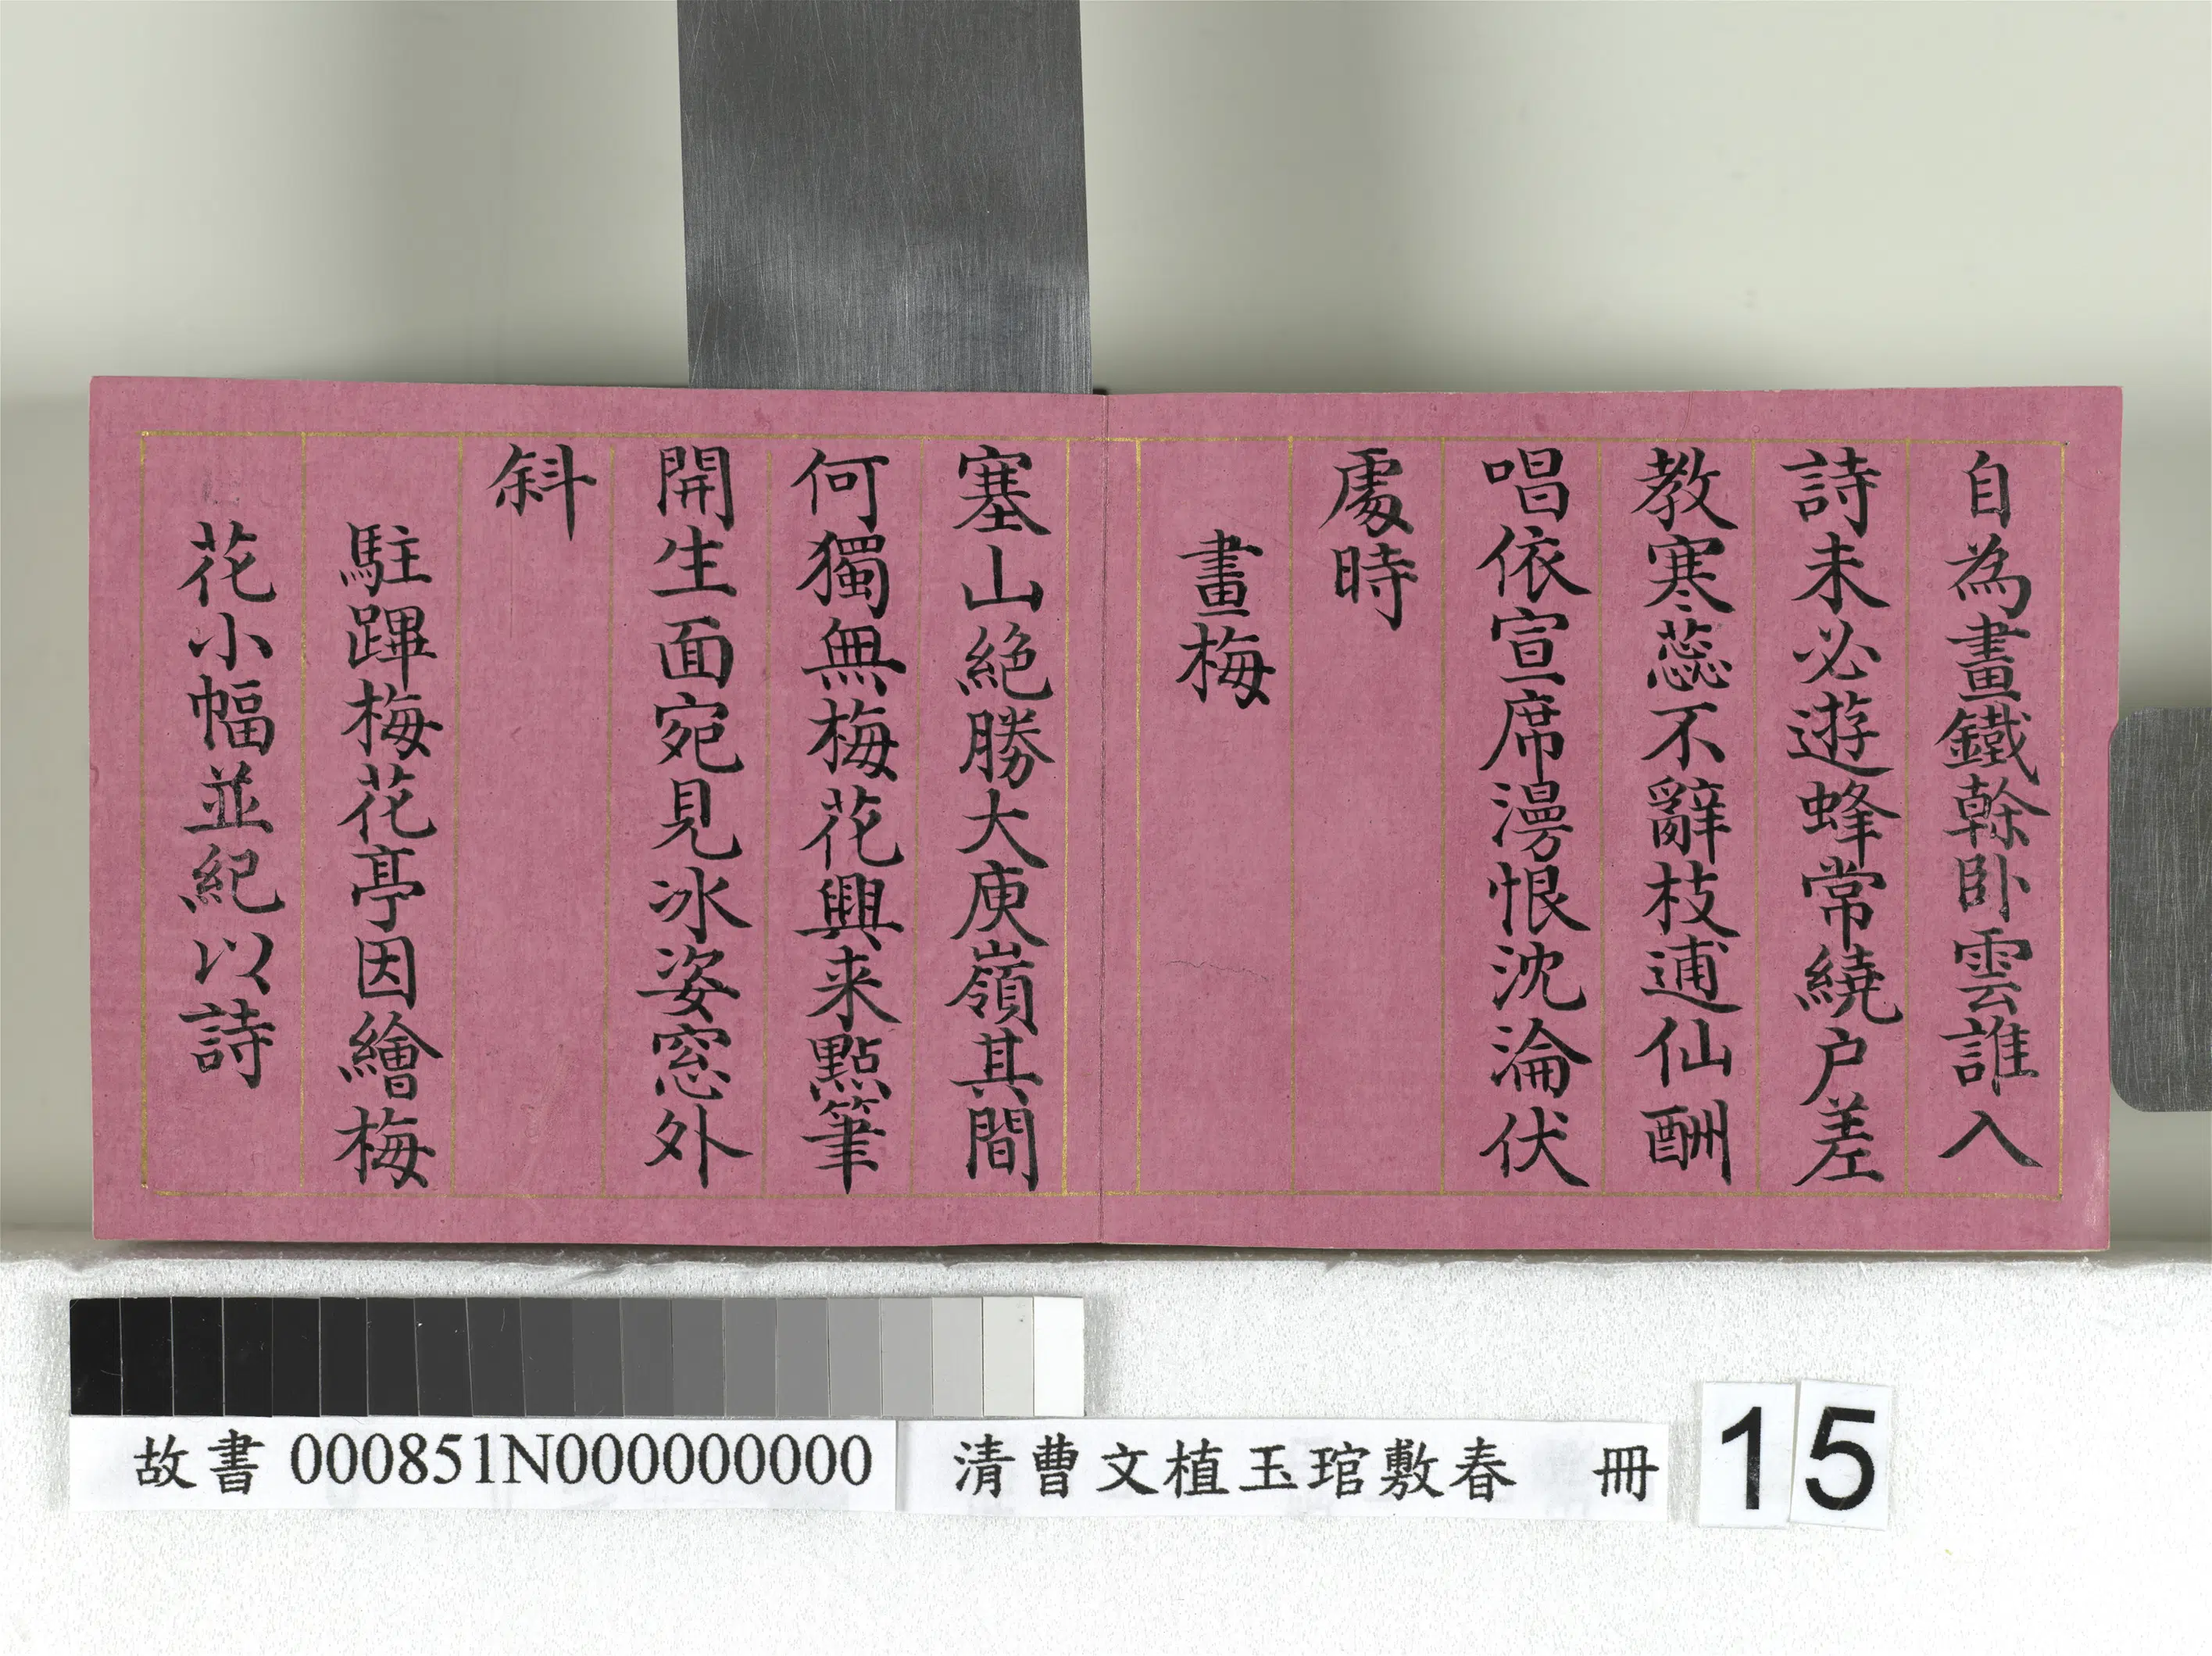 自為畫鐵榦卧雲誰入
詩未必遊蜂常繞户差
教寒蕊不辭枝逋仙酬
唱依宣席漫恨沈淪伏
處時
畫梅
塞山絶勝大庾嶺其間
何獨無梅花興来點筆
開生面宛見冰姿窓外
斜
駐蹕梅花亭因繪梅
花小幅並紀以詩
故書 000851N000000000
清曹文植玉琯敷春 冊
15